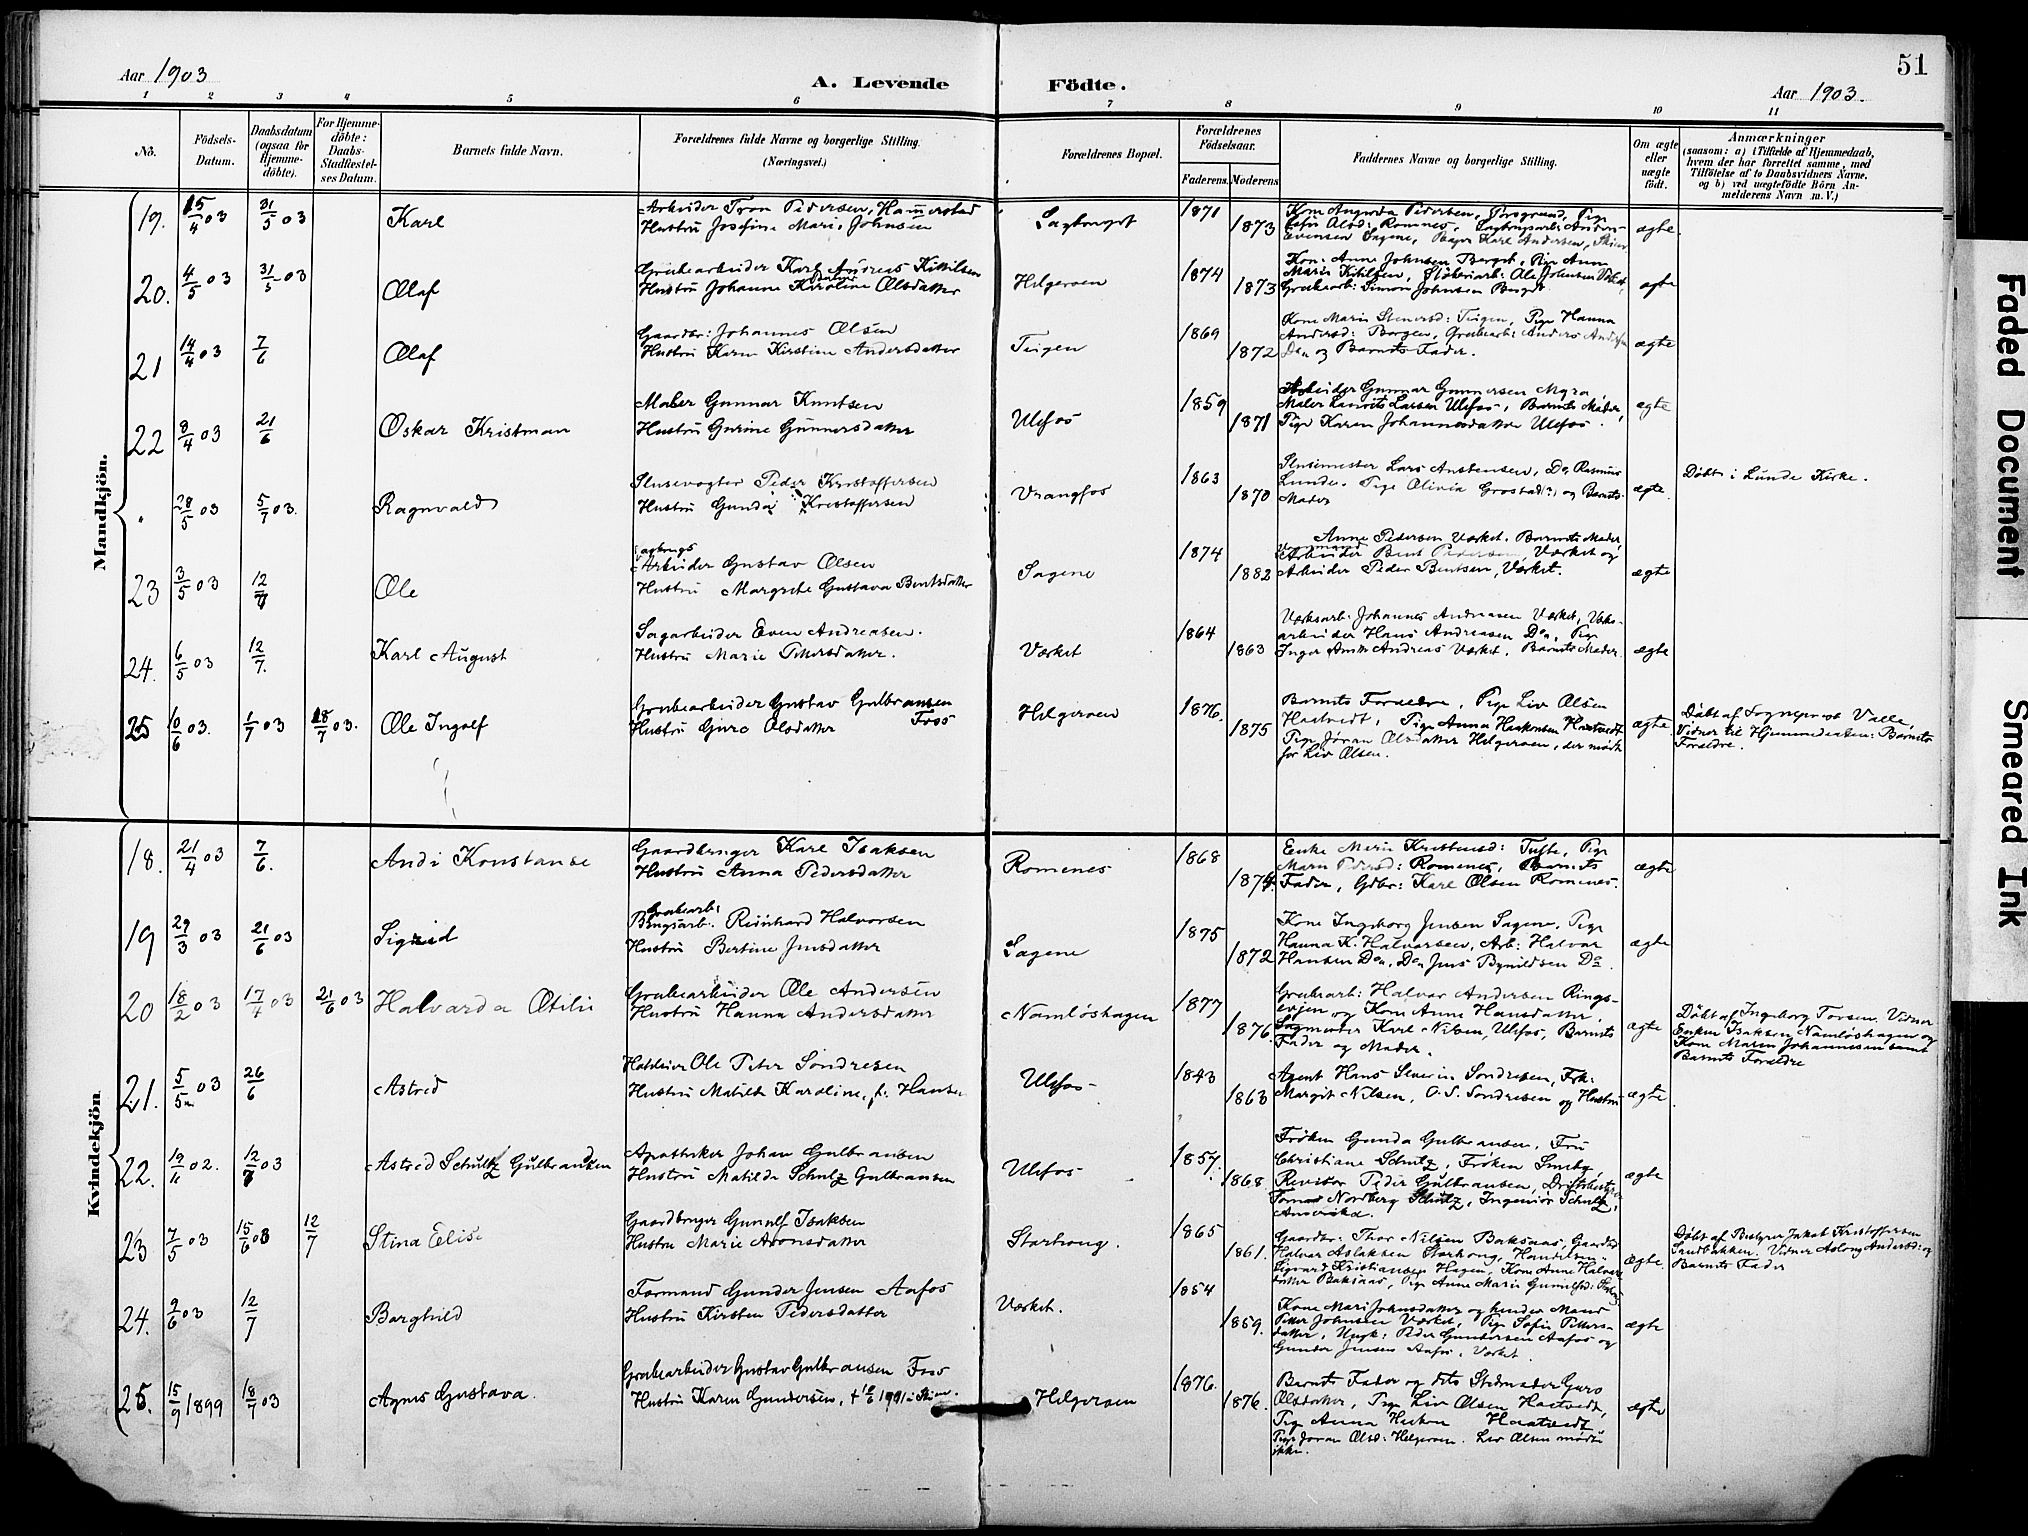 51
Aar 1903
A. Levende Födte.
Aar 1903.
1 2 3 4 5 6 7 8 9 10 11
No.
Födsels-Datum.
Daabsdatum (ogsaa for Hjemme-döbte).
For Hjemme-döbte: Daabs-Stadfæstel-ses Datum.
Barnets fulde Navn.
Forældrenes fulde Navne og borgerlige Stilling. (Næringsvei.)
Forældrenes Bopæl.
Forældrenes Födselsaar.
Faderens. Moderens.
Faddernes Navne og borgerlige Stilling.
Om ægte eller uægte födt.
Anmærkninger
(saasom: a) i Tilfælde af Hjemmedaab, hvem der har forrettet samme, med Tilföielse af to Daabsvidners Navne, og b) ved uægtefödte Börn An-melderens Navn m. V.)
Mandkjön.
19. 15/4 03 31/5 03 Karl
Arbeider Tron Pedersen, Hammerstad
Hustru Josefine Marie Johnsen
1871 1873
ægte.
20. 4/5 03 31/5 03 Olaf
Grubearbeider Karl Andreas Kittilsen
Hustru Johanne Karoline Olsdatter
Helgeroen
1874 1873
Kon: Anne Johnsen Berget, Pige Anne
Marie Kittilsen,
Grubearb: Simon Johnsen Berget.
ægte
21 14/4 03 7/6 Olaf
Gaardbr: Johannes Olsen
Hustru Karen Kirstine Andersdatter
Teigen
1869 1872
Kone Marie Stenersd: Teigen, Pige Hanna
Andersd: Borgen, Grubearb: Anders Andersen
Do og Barnets Fader.
ægte
22 8/4 03 21/6 Oskar Kristman
Maler Gunnar Knutsen
Hustru Gurine Gunnersdatter
Ulefos
1859 1871
Arbeider Gunnar Gunnersen Myra,
Maler Laurits Larsen Ulefos, Barnets Moder,
Pige Karen Johannesdatter Ulefos.
ægte
" 28/5 03 5/7 03. Ragnvald
Slusevogter Peder Kristoffersen
Hustru Gunda Kristoffersen
Vrangfos
1863 1870
Slusemester Lars Anstensen, Do Rasmus
Lunde. Pige Olivia Grostad(?) og Barnets
Moder
ægte.
Döbt i Lunde Kirke.
23 3/5 03 12/7 Ole
Arbeider Gustav Olsen
Hustru Margrete Gustava Bentsdatter
Sagene
1874 1882
Anne Pedersen Værket. Barnets Moder,
Arbeider Bent Pedersen, Værket og
Arbeider Peder Bentsen, Værket.
ægte
24. 6/5 03 12/7. Karl August
Sagarbeider Even Andreasen.
Hustru Marie Pettersdatter.
Værket
1864 1863
Værksarb: Johannes Andreasen Værket, Værks-
arbeider Hans Andreasen Do, Pige
Inger Andreas Værket, Barnets Moder.
ægte
25 10/6 03. 1/7 03 18/7 03. Ole Ingolf
Grubearbeider Gustav Gulbransen
Hustru Guro Olsdatter
Helgeroen
1876. 1875
Barnets Forældre, Pige Liv Olsen
Hastvedt, Pige Anna Haakonsen Hastvedt
Pige Jöran Olsdatter Helgeroen, der mödte
for Liv Olsen.
ægte.
Döbt af Sogneprest Valle,
Vidner til Hjemmedaaben: Barnets
Forældre.
Kvindekjön.
18. 21/4 03 7/6. Andi Konstanse
Gaardbruger Karl Isaksen
Hustru Anna Pedersdatter
Romenes
1868 1874.
Enke Maria Kristensd: Tufte, Pige
Maren Pedersd: Romenes, Barnets
Fader, Gdbr: Karl Olsen Romenes.
ægte
19 27/3 03 21/6 03 Sigrid
Reinhard Halvorsen
Hustru Bertine Jensdatter
Sagene
1875 1872
Kone Ingeborg Jensen Sagene, Pige
Hanna K. Halvorsen, Arb: Halvor
Hansen Do, Do Jens Bynildsen Do.
ægte
20 18/2 03 17/4 03 21/6 03 Halvarda Otilie
Grubearbeider Ole Andersen
Hustru Hanna Andersdatter
Namlöshagen
1877 1876.
Grubearb: Halvor Andersen Rings-
evjen og Kone Anne Hansdatter,
Sagmester Karl Nilsen, Ulefos, Barnets
Fader og Moder.
ægte
Döbt af Ingeborg Torsen. Vidner
Enken Isaksen, Namlöshagen og
Kone Maren Johannesen samt
Barnets Forældre
21. 5/5 03 26/6 Astrid
Ole Peter Sondresen
Hustru Matilde Karoline, f: Hansen
Ulefos
1843 1863
Agent Hans Severin Sondresen, Frk:
Margit Nilsen, O. S. Sondresen og Hustru
ægte.
22. 19/11 02. 12/7 03 Astrid Schultz Gulbrandsen
Apotheker Johan Gulbransen
Hustru Matilde Schulz Gulbransen
Ulefos
1857. 1868.
Fröken Gunda Gulbransen, Fru
Christiane Schulz, Fröken Smeby,
Revisor Peder Gulbransen, Driftsbestyrer
Nordberg Schulz, Ingeniör Schulz,
Amerika.
ægte
23 7/5 03 15/6 03 12/7 Stina Elise
Gaardbruger Gunulf Isaksen
Hustru Marie Aronsdatter
Starhong.
1865 1861.
Gaardbr: Thor Nilsen Baksaas, Gaardbr
Halvor Aslaksen Starhong, Handelsm:
Sigvard Kristiansen Hagen, Kone Anne Halvors-
datter Baksaas, Pige Anne Marie
ægte.
Döbt af Bestyrer Jakob Kristoffersen
Sandbakken. Vidner Aslong Andersd: og
Barnets Fader
24. 2/6 03 12/7 Borghild
Formand Gunder Jensen Aafos
Hustru Kirsten Pedersdatter
Værket.
1854 1859.
Kone Mari Johnsdatter og hendes Mand
Petter Johnsen Værket, Pige Sofie Petters-
datter, Ungk: Peder Gundersen Aafos og
Gunder Jensen Aafos, Værket.
ægte
25. 15/9 1899 18/7 03 Agnes Gustava.
Grubearbeider Gustav Gulbransen
Hustru Karen Gundersen,
Helgeroen
1876. 1876.
Barnets Fader og dets Stedmoder Guro
Olsdatter, Pige Liv Olsen Hastvedt,
Pige Anna Haakon Hastvedt
Pige Joran Olsd: Helgeroen. Liv Olsen mödte
ikke.
ægte
Faded Document
Smeared Ink